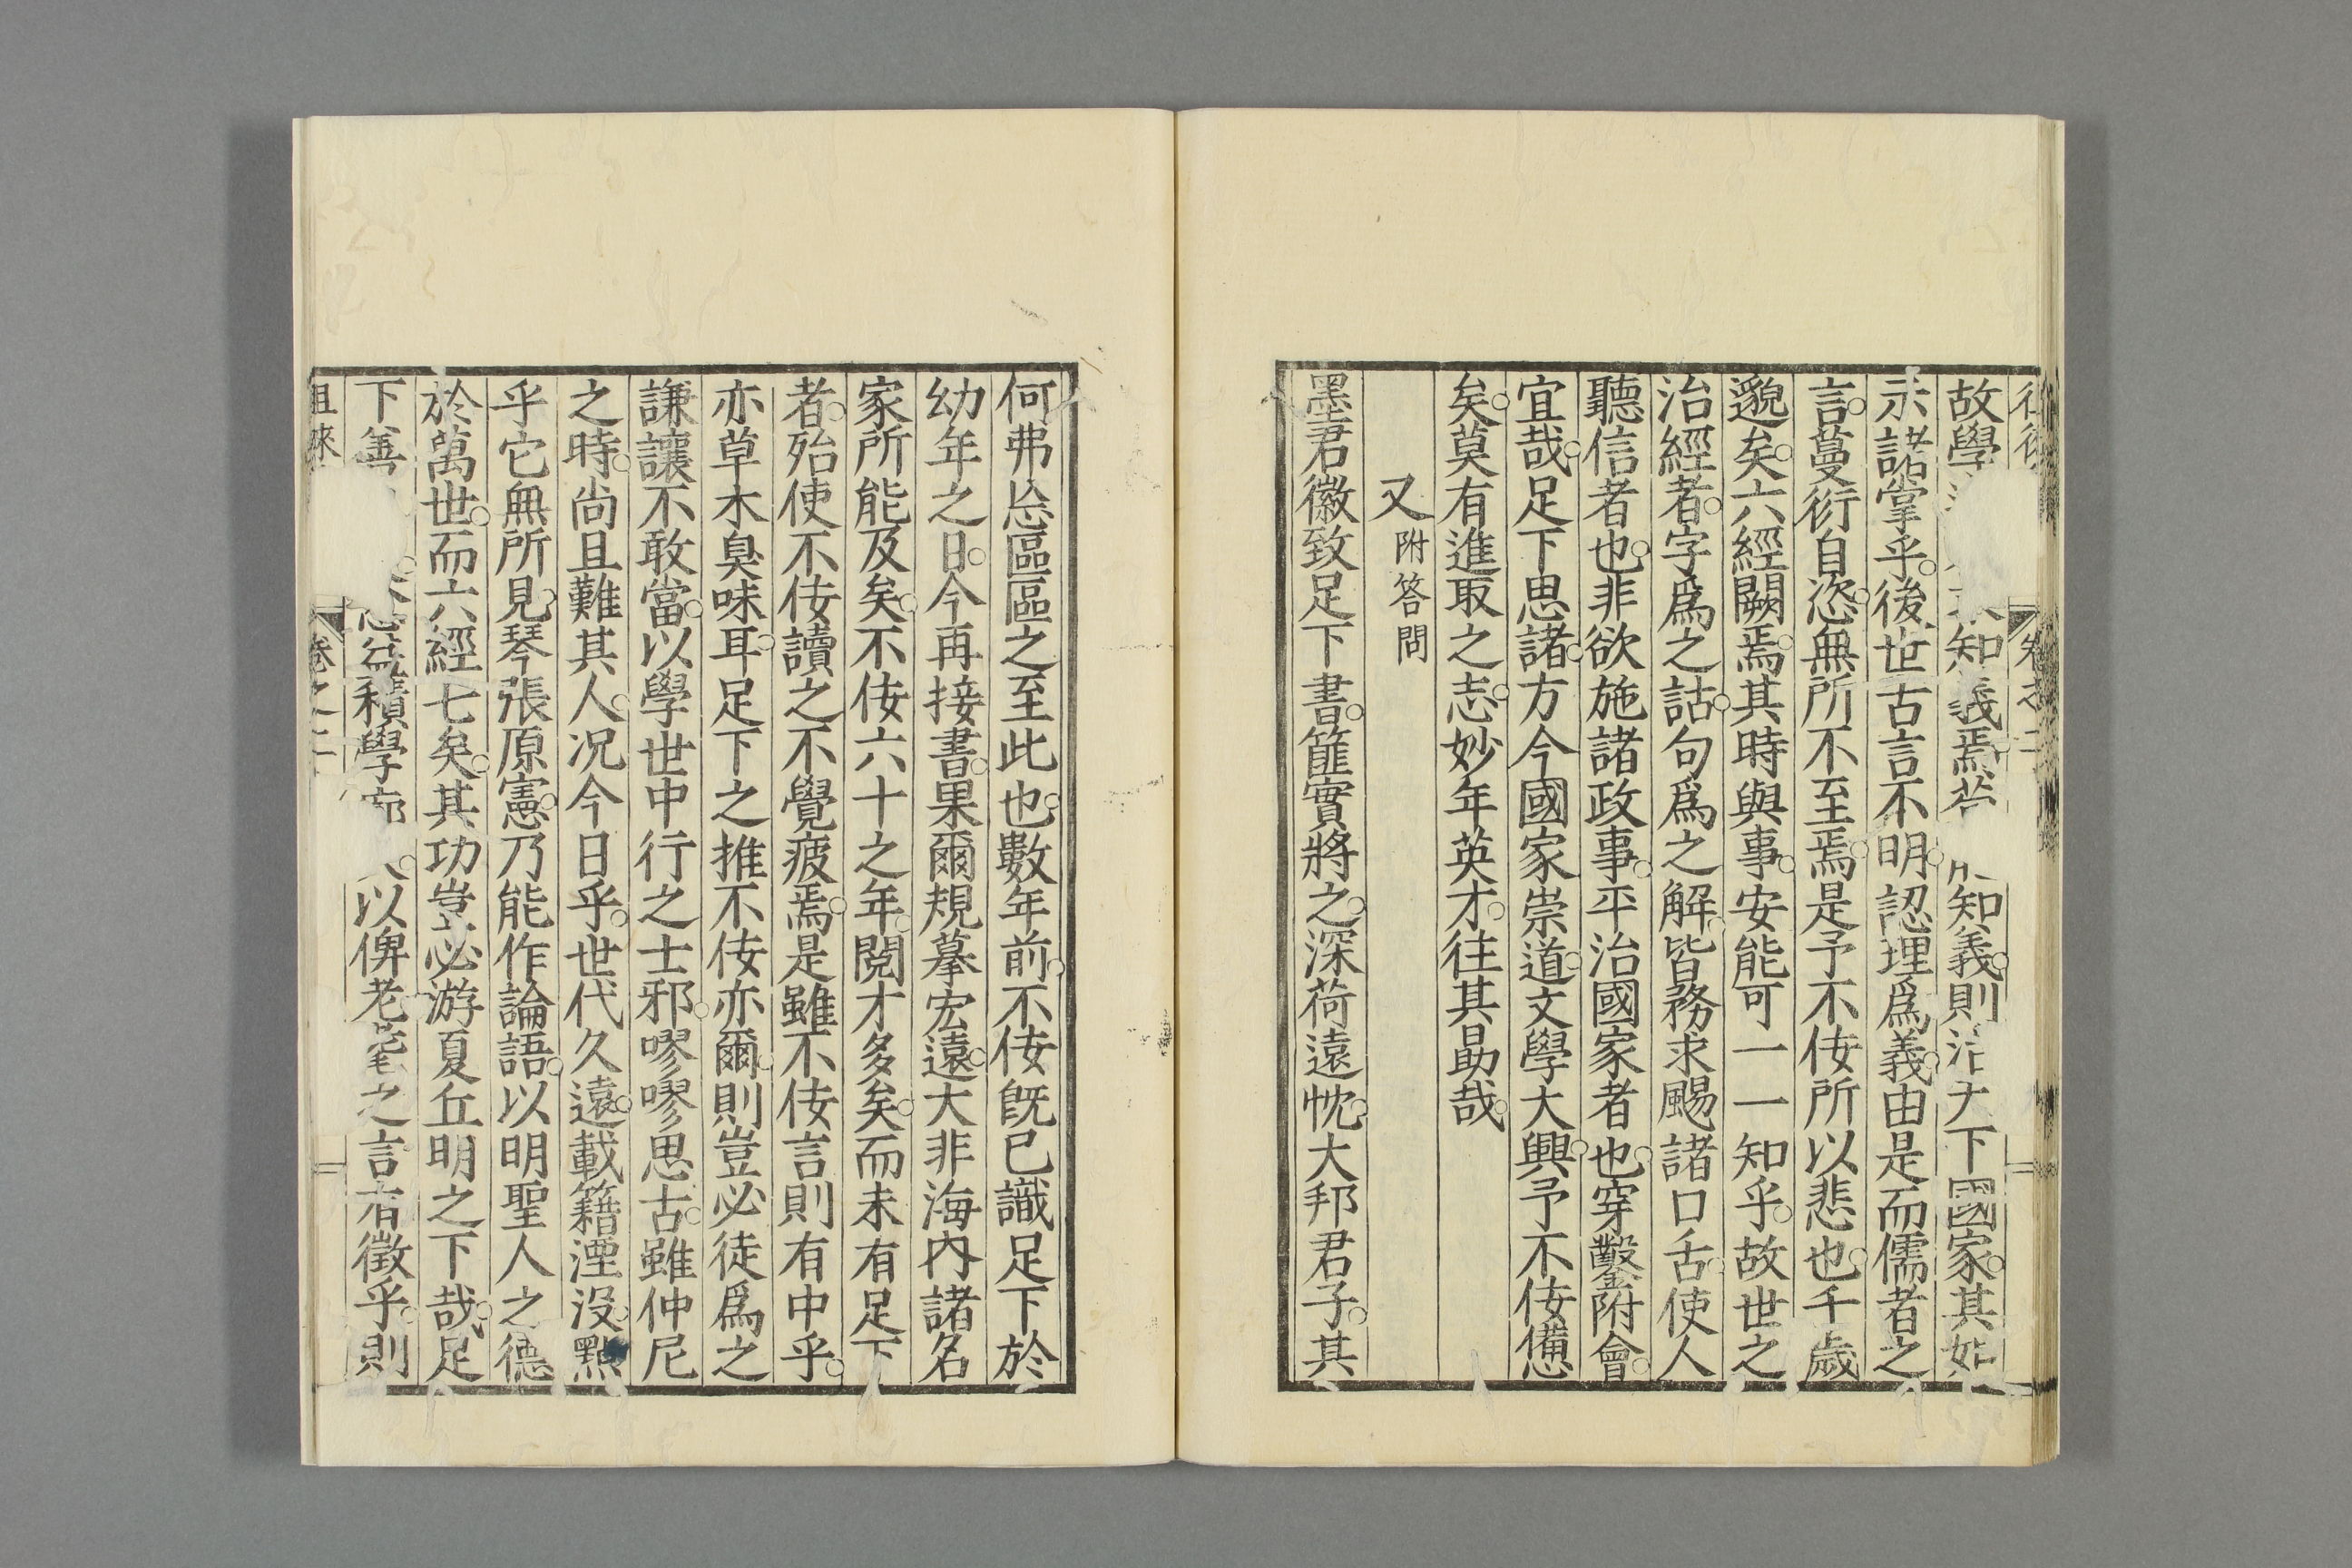 故學知義焉知義則下國家其如
示諸掌乎後世古言不明認理爲義由是而儒者之
言蔓衍自恣無所不至焉是予不佞所以悲也千歲
邈矣六經闕焉其時與事安能可一一知乎故世之
治經者字爲之詁句爲之解皆務求賜諸口舌使人
聽信者也非欲施諸政事平治國家者也穿鑿附會
宜哉足下思諸方今國家崇道文學大興予不佞憊
矣莫有進取之志妙年英才往其勗哉
又附答問
墨君徽致足下書篚實將之深荷遠忱大邦君子其
何弗忘區區之至此也數年前不佞旣已識足下於
幼年之日今再接書果爾規摹宏遠大非海內諸名
家所能及矣不佞六十之年閱才多矣而未有足下
者殆使不佞讀之不覺疲焉是雖不佞言則有中乎
亦草木臭味耳足下之推不佞亦爾則豈必徒爲之
謙讓不敢當以學世中行之士邪嘐嘐思古雖仲尼
之時尚且難其人况今日乎世代久遠載籍湮沒點
乎它無所見琴張原憲乃能作論語以明聖人之德
於萬世而六經七矣其功豈必游夏丘明之下哉足
下善益積學以俾老耄之言有徵乎則
徂徠 卷之二